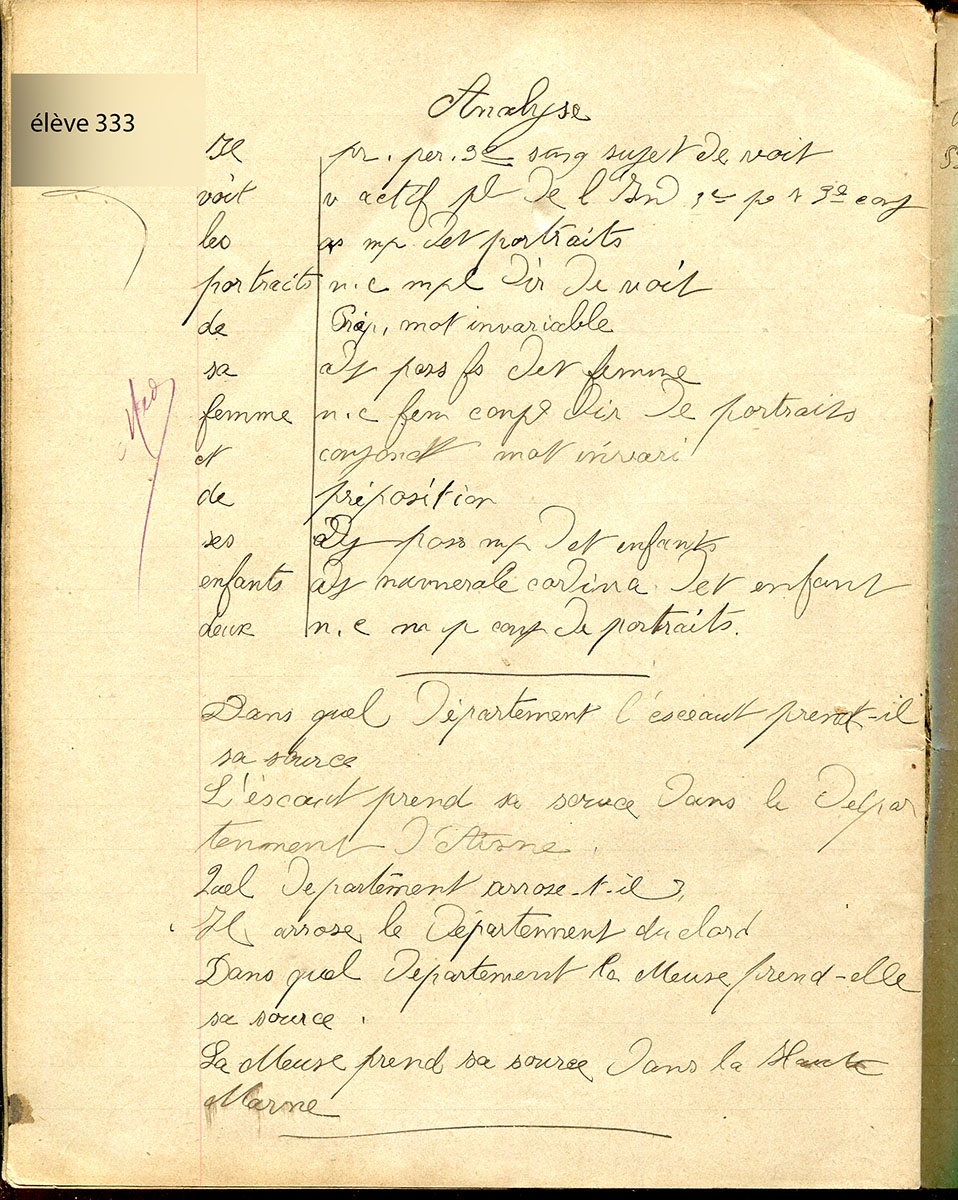 élève 333
Analyse
Il pr. per. 3e sing sujet de voit
voit v actif pt de l'Ind 3e pe s 3e conj
les as mp det portraits
portraits n.c mpl dir de voit
de Prép, mot invariable
sa adj poss fs det femme
femme n.c fem compl dir de portraits
et mot invari
de préposition
ses adj poss mp det enfants
enfants adj numerale cardina det enfant
deux n.c m p comp de portraits.
Dans quel Département l'esceaut prend-il
sa source
L'éscaut prend sa source dans le Depar
tenment d'Aisne.
Quel Departement arrose-t-il ?
Il arrose le Département du Nord
Dans quel Departement la Meuse prend-elle
sa source.
La Meuse prend sa source dans la Haute
Marne